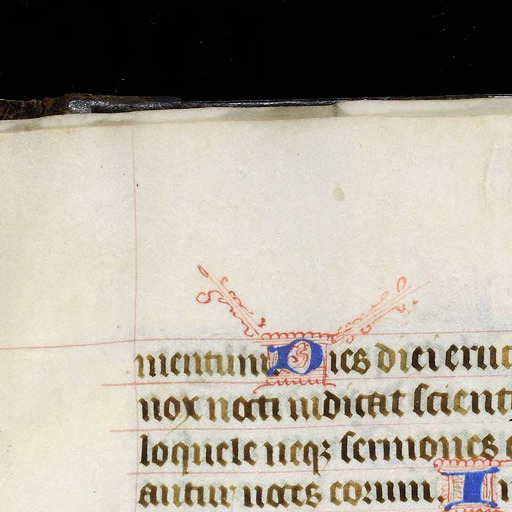 mentum. Dies diei eruc
nox nocti indicat scient
loquele neqꝫ sermones
antur uoces eorum. I